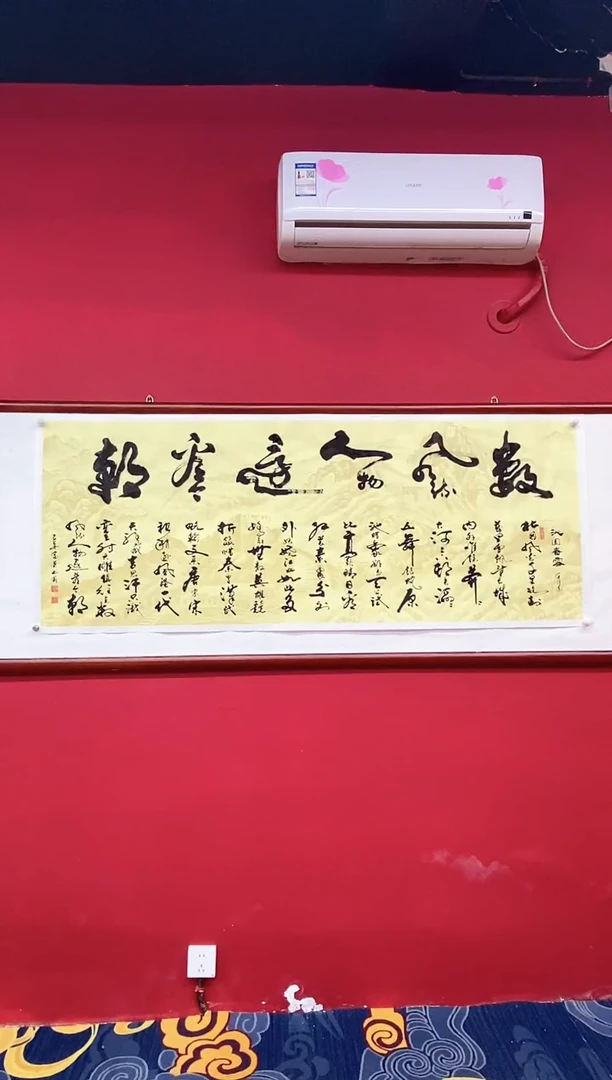 數风流人物還看今朝
沁园春雪
北国风光千里冰封
万里雪飘望长城
内外惟余莽莽
大河上下顿失滔滔
山舞银蛇原
驰蜡象欲与天公试
比高须晴日看
红装素裹分
外妖娆江山如此多
娇引无数英雄竞
折腰惜秦皇汉武
略输文采唐宗宋
祖稍逊风骚一代
天骄成吉思汗只识
弯弓射大雕俱往矣数
风流人物还看今朝